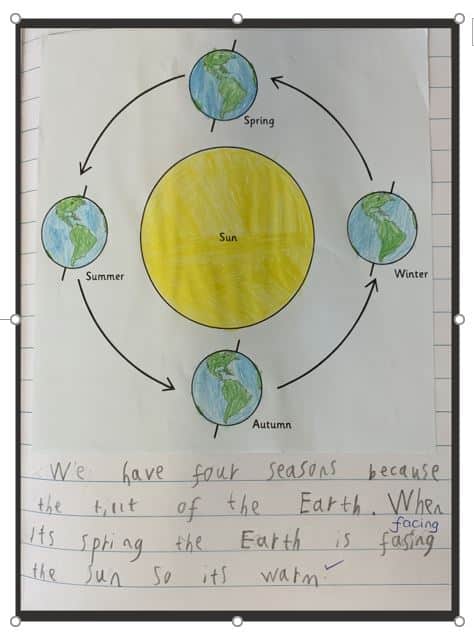 Spring
Sun
Summer
Winter
Autumn
We have four seasons because
the tillt of the Earth. When
facing
its spring the Earth is fasing
the sun so its warm.